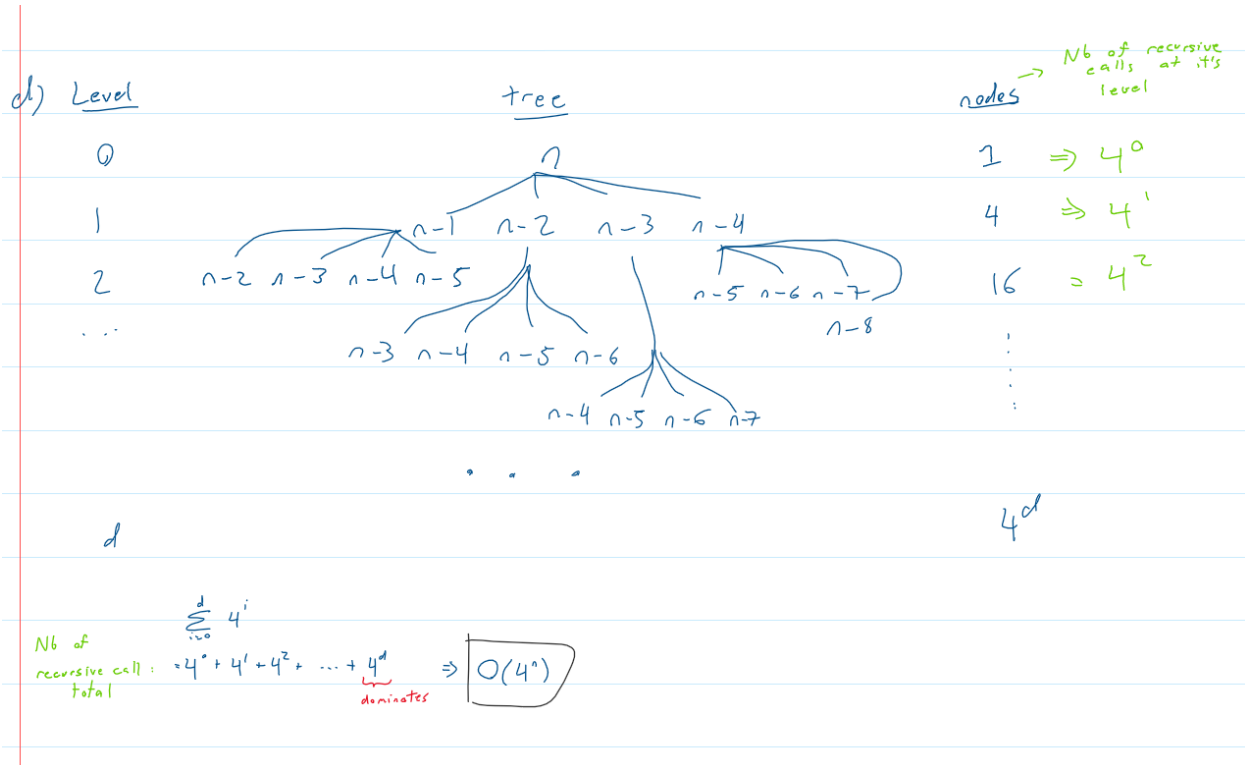 d) Level tree nodes → Nb of recursive calls at it's level
0 n 1 ⇒ 4^0
1 n-1 n-2 n-3 n-4 4 ⇒ 4^1
2 n-2 n-3 n-4 n-5 n-5 n-6 n-7 16 = 4^2
... n-8
n-3 n-4 n-5 n-6
n-4 n-5 n-6 n-7
. . .
d 4^d
d
Σ 4^i
i=0
Nb of recursive call total : = 4^0 + 4^1 + 4^2 + ... + 4^d ⇒ O(4^n)
dominates